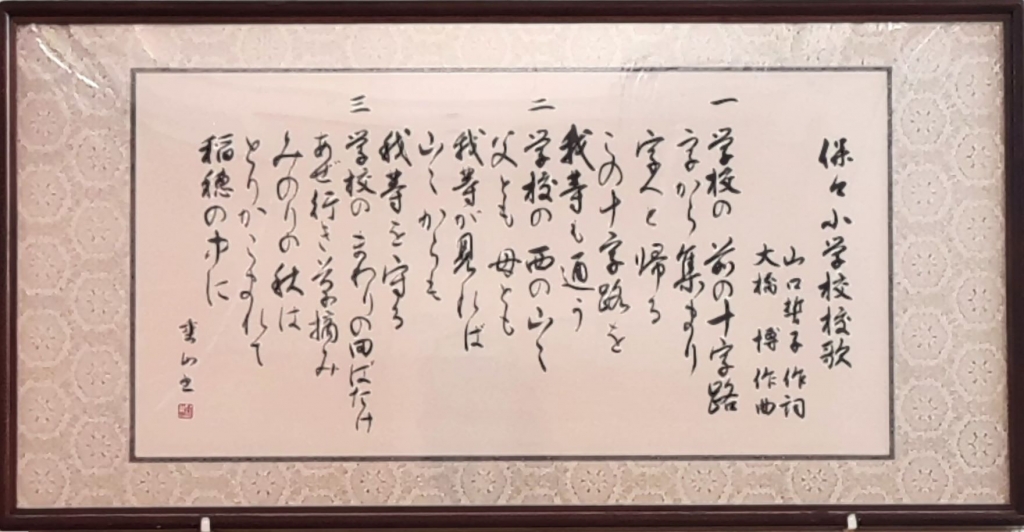 保々小学校校歌
山口誓子 作詞
大橋 博 作曲
一 学校の 前の十字路
字から集まり
字へと帰る
この十字路を
我等も通う
二 学校の 西の山々
父とも 母とも
我等が見れば
山々からも
我等を守る
三 学校の まわりの田ばたけ
あぜ行き 草摘み
みのりの秋は
とりかこまれて
稲穂の中に
山書